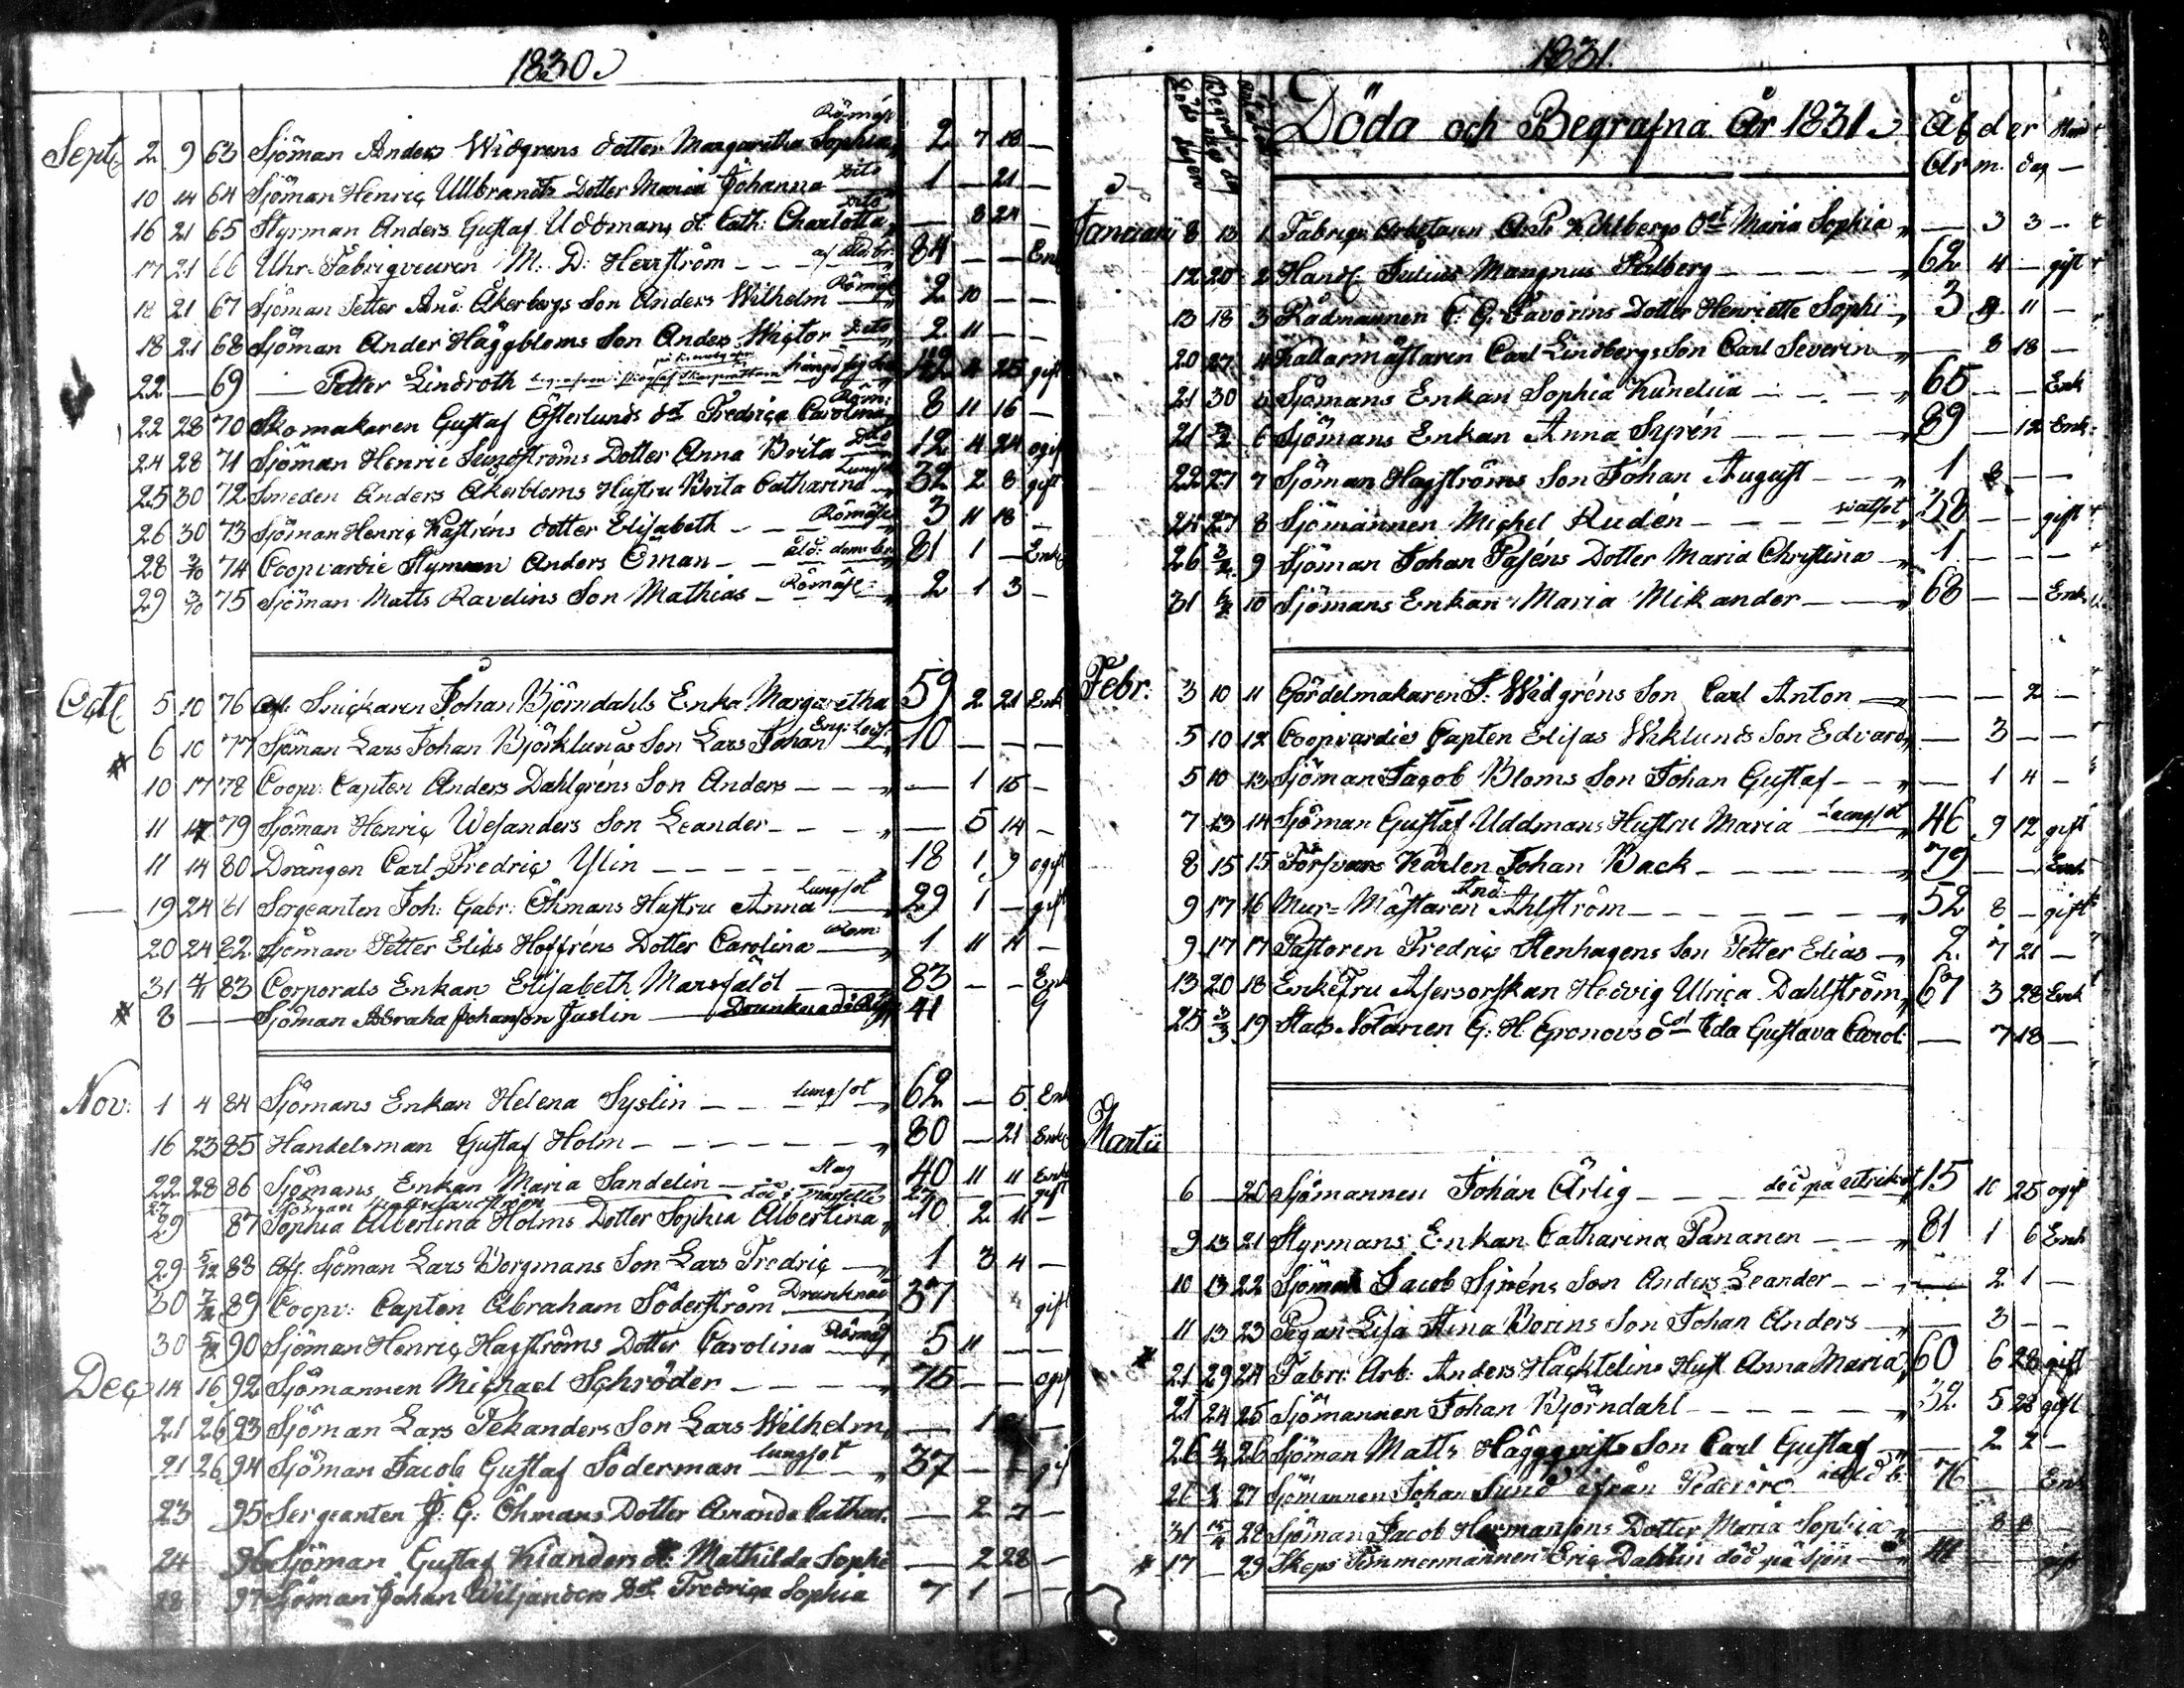 1830
Sept. 2 9 63 Sjöman Anders Widgrens dotter Margaretha Sophia Römåsl 2 7 18 —
10 14 64 Sjöman Henric Ullbrandts Dotter Maria Johanna dito 1 — 21 —
16 21 65 Styrman Anders Gustaf Uddmans dt Cath: Charlotta dito — 8 24 —
17 21 66 Uhr-Fabriqveuren M: D: Herrström — — af åld:br: 84 — — Enkl
18 21 67 Sjöman Petter And: Åkerbergs Son Anders Wilhelm Römåsl 2 10 — —
18 21 68 Sjöman Ander Häggbloms Son Anders Wictor dito 2 11 — —
22 — 69 — Petter Lindroth hängd sig 42 4 25 gift
22 28 70 Skomakaren Gustaf Österlunds dt Fredrica Carolina Röm: 8 11 16 —
24 28 71 Sjöman Henric Sundströms Dotter Anna Brita dito 12 4 24 ogift
25 30 72 Smeden Anders Åkerbloms Hustru Brita Catharina Lungs 32 2 8 gift
26 30 73 Sjöman Henric Kastréns dotter Elisabeth — — Römåsl 3 11 18 —
28 3/10 74 Coopvardie Styrman Anders Öman — — åld:dom br 81 1 — Enkl
29 3/10 75 Sjöman Matts Ravelins Son Mathias — Römåsl 2 1 3 —
Octl 5 10 76 Afl. Snickaren Johan Björndahls Enka Margaretha 59 2 21 Enk
6 10 77 Sjöman Lars Johan Björklunds Son Lars Johan 10 — — —
10 17 78 Coopv: Capten Anders Dahlgréns Son Anders — — — — 1 15 —
11 17 79 Sjöman Henric Wesanders Son Leander — — — — 5 14 —
11 14 80 Drängen Carl Fredric Ylin — — — — — 18 1 9 ogift
19 24 81 Sergeanten Joh: Gabr: Öhmans Hustru Anna lungsot 29 1 — gift
20 24 82 Sjöman Petter Elias Hoffréns Dotter Carolina Röm: 1 11 11 —
31 4/11 83 Corporals Enkan Elisabeth Marsfält — — 83 — — Enk
8 — — Sjöman Abraha Johanson Juslin — Drunknad 41 G
Nov: 1 4 84 Sjömans Enkan Helena Syslin — — lungsot 62 — 5 Enk
16 23 85 Handelsman Gustaf Holm — — — — — — 80 — 21 Enkl
22 28 86 Sjömans Enkan Maria Sandelin — Slag 40 11 11 Enk
27 Sjöman död i Marseille 27 — — gift
29 87 Sophia Albertina Holms Dotter Sophia Albertina 10 2 11 —
29 5/12 88 Afl. Sjöman Lars Borgmans Son Lars Fredric — 1 3 4 —
30 7/12 89 Coopv: Capten Abraham Söderström Drunknad 37 gift
30 5/12 90 Sjöman Henric Hagströms Dotter Carolina Römåsl 5 11 — —
Dec 14 16 92 Sjömannen Michael Schröder — — — — 75 — — ogif
21 26 93 Sjöman Lars Pekanders Son Lars Wilhelm — 1 —
21 26 94 Sjöman Jacob Gustaf Söderman lungsot 37 — — gif
23 95 Sergeanten J: G: Öhmans Dotter Amanda Cathar. — 2 7 —
24 96 Sjöman Gustaf Kianders dt: Mathilda Sophi — 2 28 —
28 97 Sjöman Johan Wiljanders Dot. Fredrica Sophia 7 1 — —
1831.
Döda och Begrafna År 1831
Ålder
År m. dag —
Januarii 8 13 1 Fabriqs Arbetaren A: P: Kihlbergs Dot Maria Sophia — 3 3 —
12 20 2 Handl. Julius Mangnus Pahlberg — — — — 62 4 — gift
13 18 3 Rådmannen C: G: Favorins Dotter Henriette Sophi 3 9 11 —
20 27 4 Källarmästaren Carl Lindbergs Son Carl Severin — 8 18 —
21 30 5 Sjömans Enkan Sophia Kuneliia — — — 65 — — Enk
21 2/2 6 Sjömans Enkan Anna Syrén — — — — 89 — 12 Enk
22 27 7 Sjöman Hagströms Son Johan August — — 1 8 — —
24 27 8 Sjömannen Michel Rudén — — — watsot 38 — — gift
26 3/2 9 Sjöman Johan Paséns Dotter Maria Christina — 1 — — —
31 6/2 10 Sjömans Enkan Maria Mikander — — — 68 — — Enk
Febr: 3 10 11 Gördelmakaren S: Widgréns Son Carl Anton — — — 2 —
5 10 12 Coopvardie Capten Elisas Wiklunds Son Edvard — 3 — —
5 10 13 Sjöman Jacob Bloms Son Johan Gustaf — — — 1 4 —
7 13 14 Sjöman Gustaf Uddmans Hustru Maria Lungsot 46 9 12 gift
8 15 15 Försvars Karlen Johan Back — — — — 79 — — Enk
9 17 16 Mur-Mästaren And: Ahlström — — — — — 52 8 — gift
9 17 17 Pastoren Fredric Stenhagens Son Petter Elias — 2 7 21 —
13 20 18 EnkeFru Assessorskan Hedvig Ulrica Dahlström 67 3 28 Enk
25 3/3 19 Stads Notarien G: H: Gronovs dot Eda Gustava Carol: — 7 18 —
Martii
6 — 20 Sjömannen Johan Ärlig — — — död på utrikes 15 10 25 ogift
9 13 21 Styrmans Enkan Catharina Pananen — — — 81 1 6 Enk
10 13 22 Sjöman Jacob Siréns Son Anders Leander — — — 2 1 —
11 13 23 Pigan Lisa Stina Borins Son Johan Anders — — 3 — —
21 29 24 Fabri: Arb: Anders Häcktelins Hust Anna Maria 60 6 28 gift
21 24 25 Sjömannen Johan Björndahl — — — — — 32 5 28 gift
26 4/4 26 Sjöman Matts Häggqvists Son Carl Gustaf — 2 2 —
27 Sjömannen Johan Sund ifrån Pederöre 76 Enk
31 28 Sjöman Jacob Hermansons Dotter Maria Sophia — 8 8 —
17 — 29 Skeps Timmermannen Eric Dahlin död på sjön — 41 — — gift